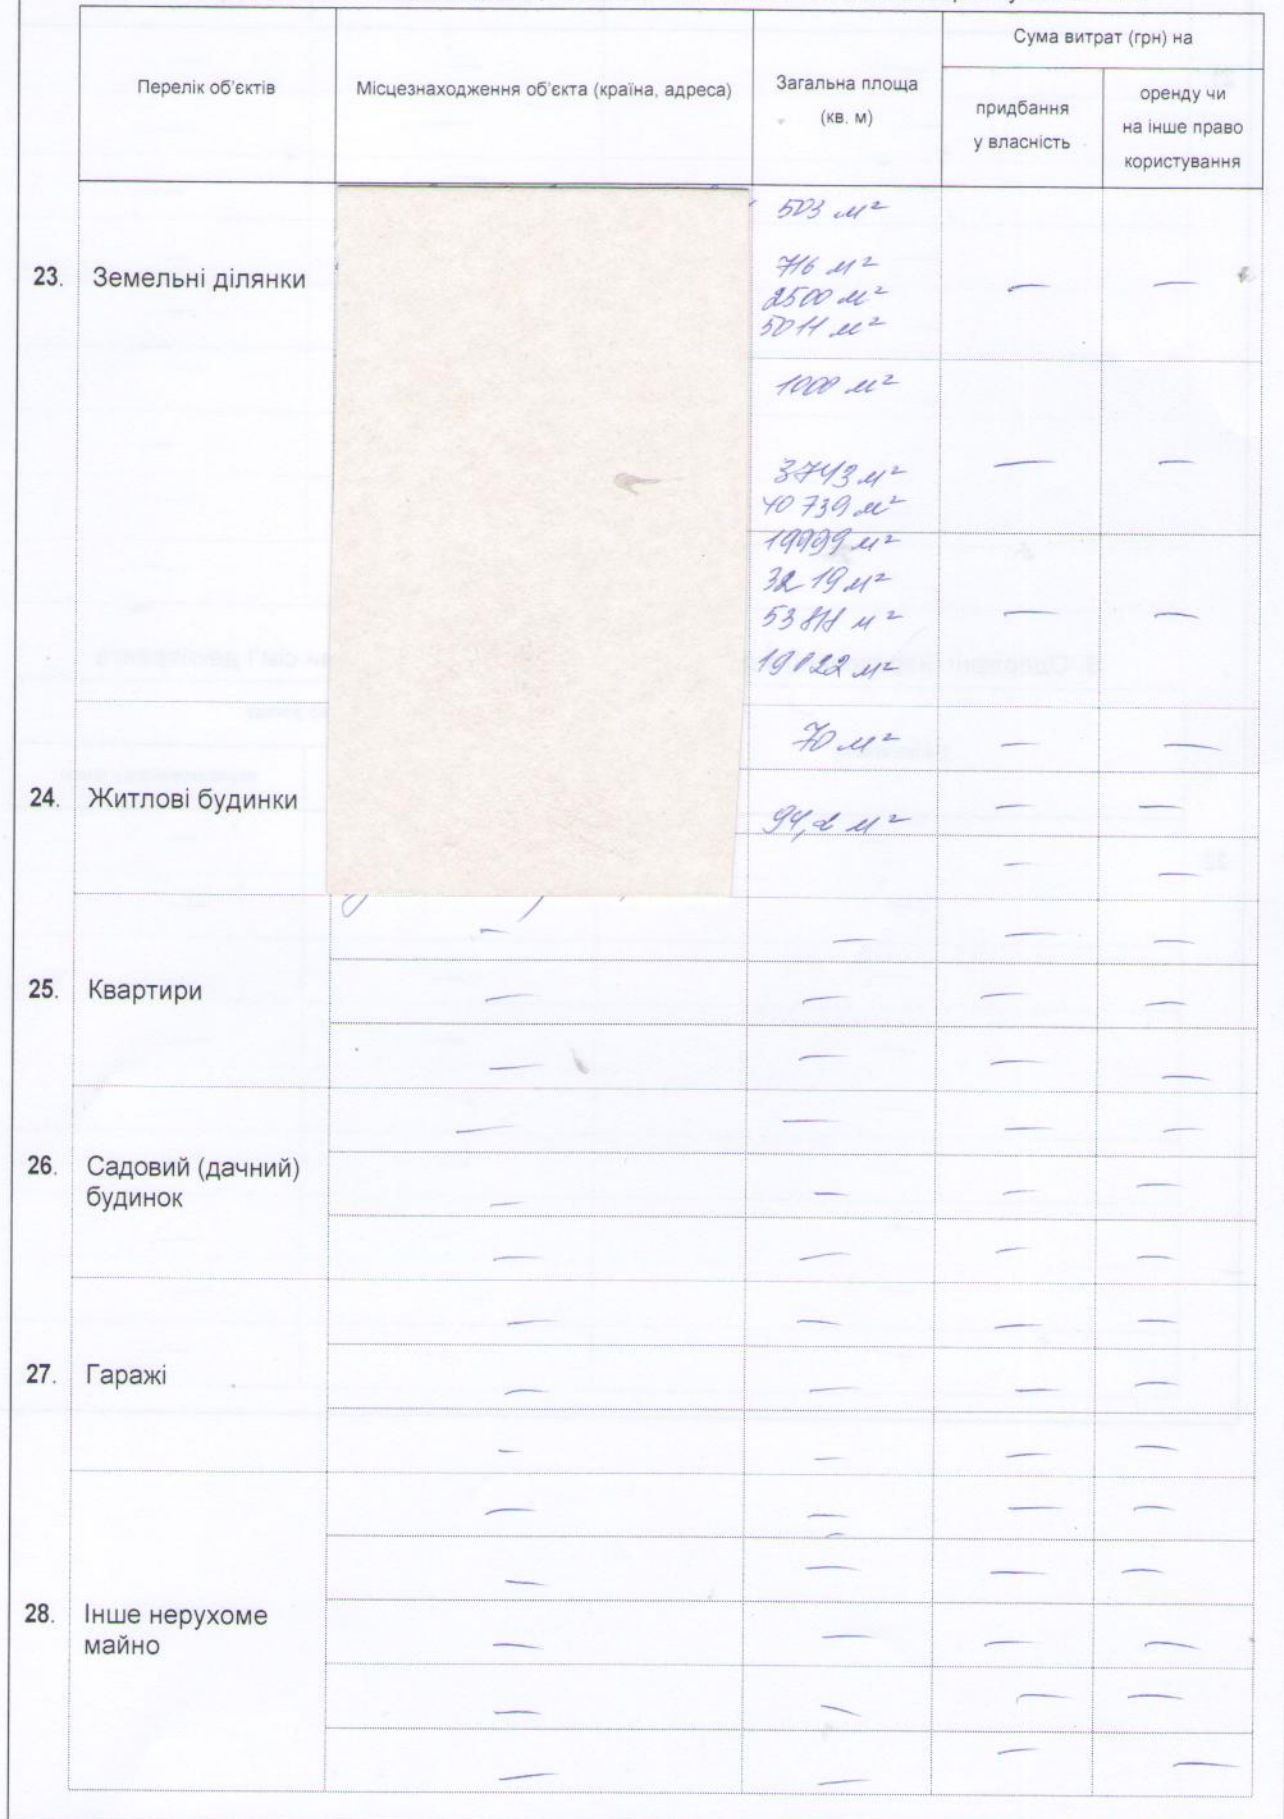 Сума витрат (грн) на
Перелік об'єктів
Місцезнаходження об'єкта (країна, адреса)
Загальна площа
(кв. м)
придбання
у власність
оренду чи
на інше право
користування
23. Земельні ділянки
503 м²
716 м²
2500 м²
5011 м²
— —
1000 м²
3743 м²
40 739 м²
— —
19999 м²
3219 м²
— —
19022 м²
70 м² — —
24. Житлові будинки
94,2 м² — —
— —
— — — —
25. Квартири
— — — —
— — — —
— — — —
26. Садовий (дачний)
будинок
— — — —
— — — —
— — — —
27. Гаражі
— — — —
— — — —
— — — —
28. Інше нерухоме
майно
— — — —
— — — —
— — — —
— — — —